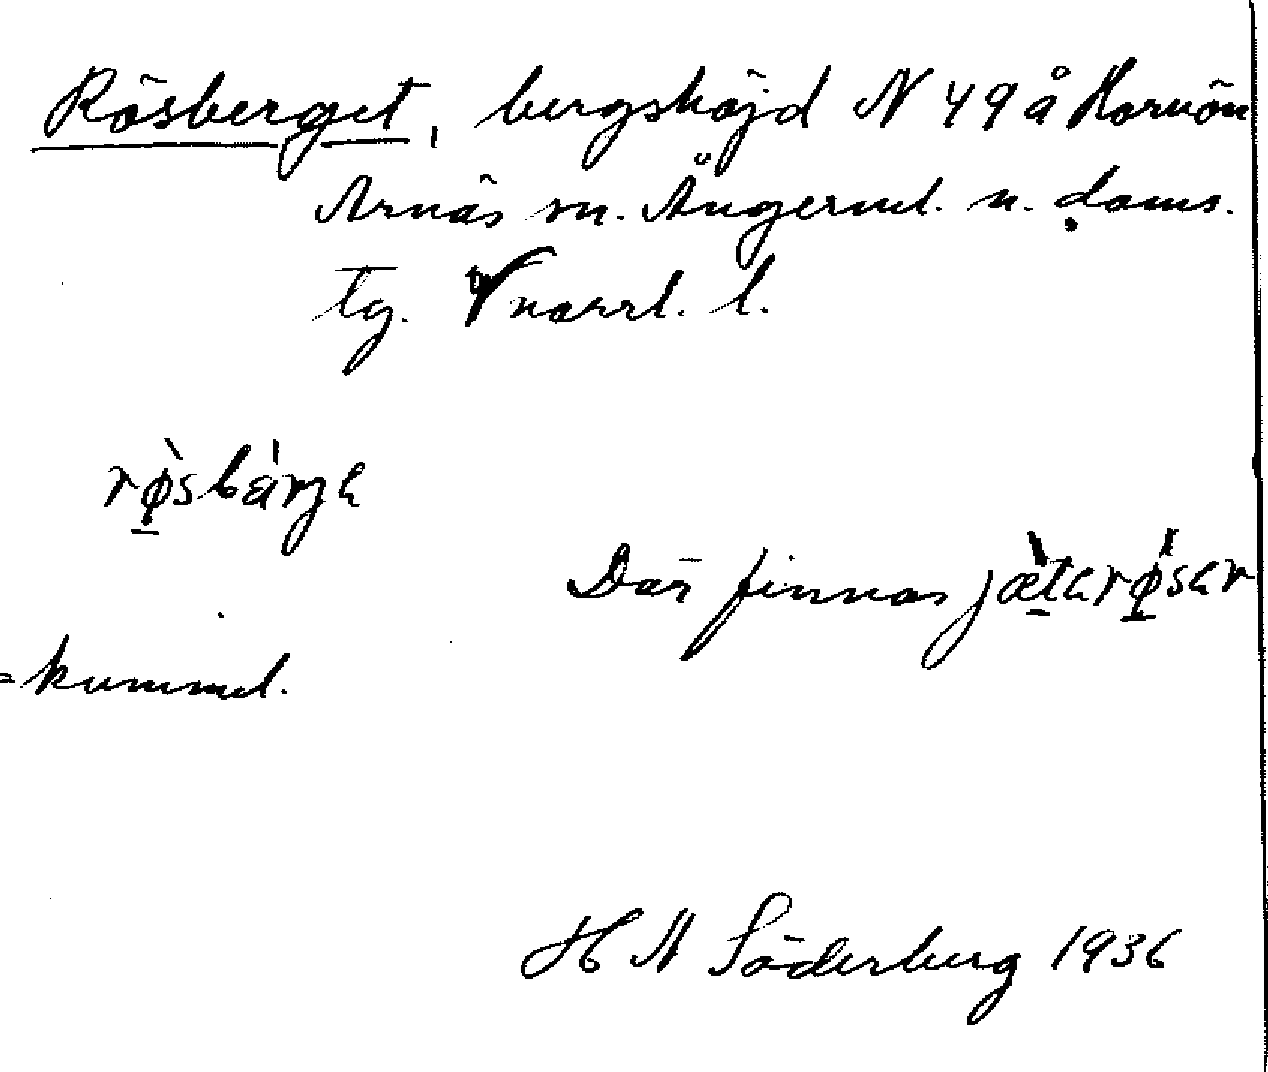 Rösberget, bergshöjd N 49 å Horvön
Arnäs sn. Ångerml. n. doms.
tg. norrl. l.
rø̀sbárjɛ
Där finnas jæ̀tɛrø̀sɛr
=kummel.
H A Söderberg 1936